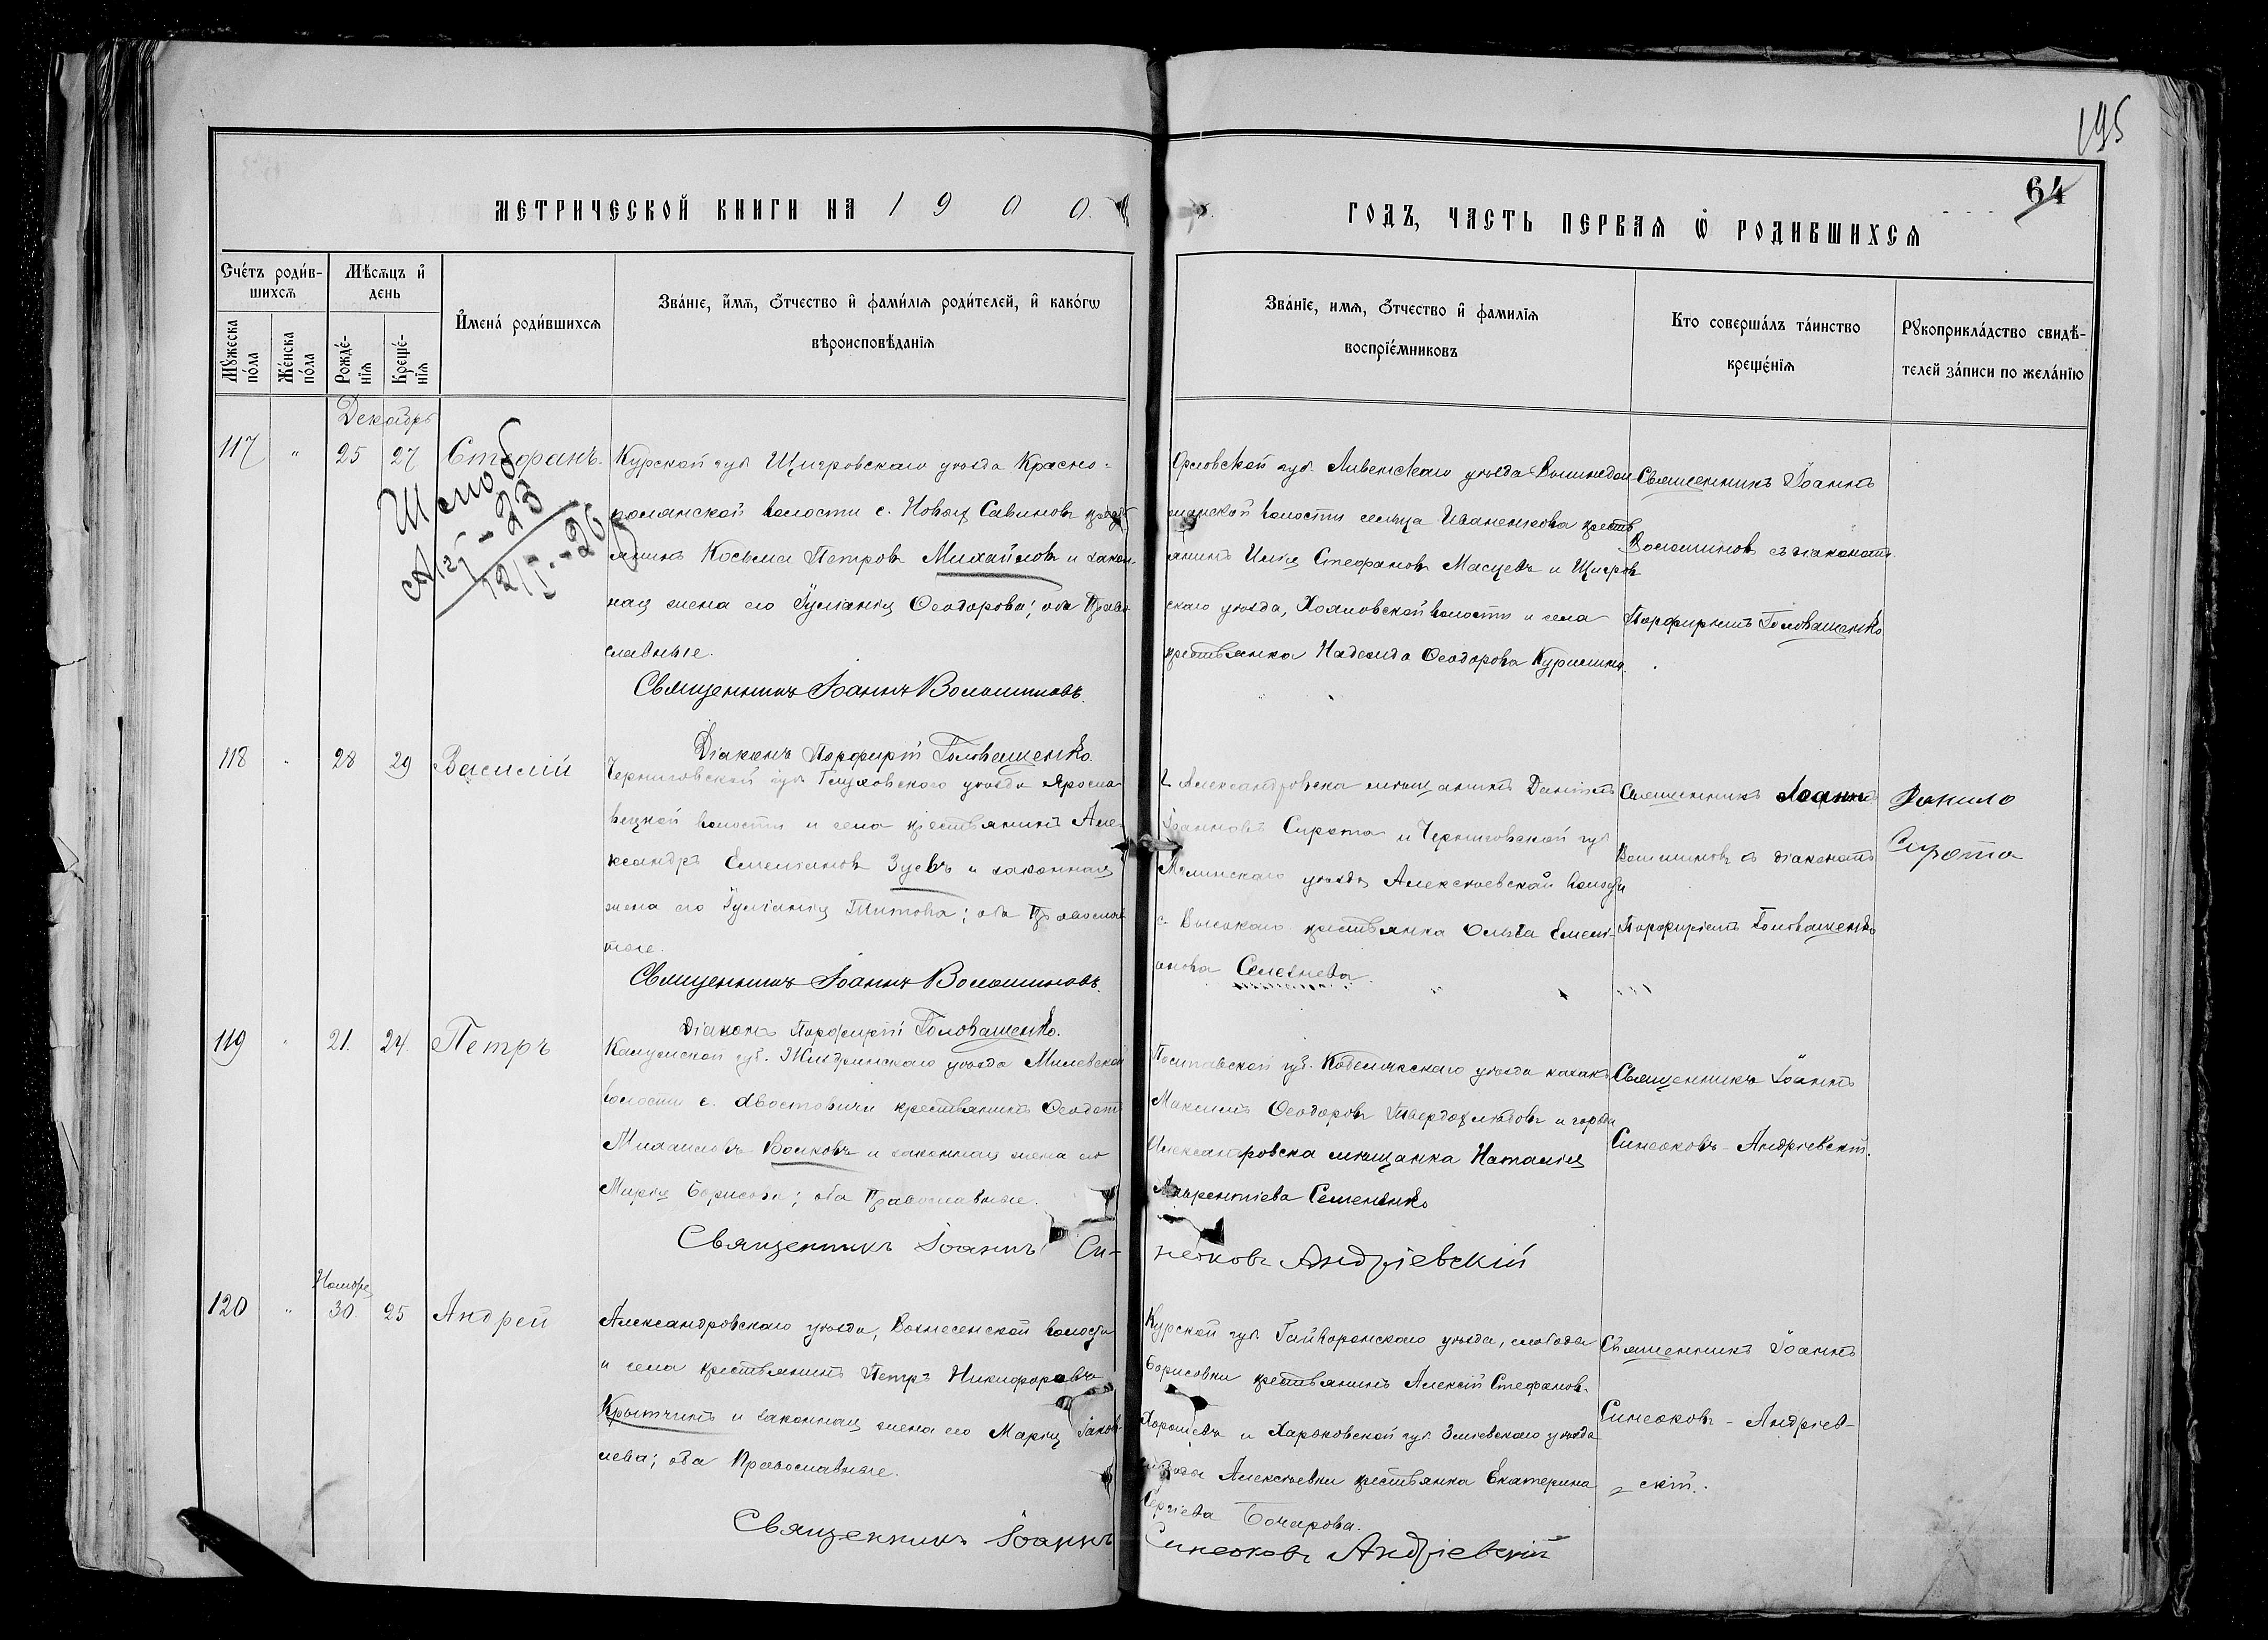 195
64
МЕТРИЧЕСКОЙ КНИГИ НА 1900
ГОДЪ, ЧАСТЬ ПЕРВАЯ Ѡ РОДИВШИХСЯ
Счетъ родив-
шихся
Мужеска пола
Женска пола
Мѣсяцъ и
день
Рожде-
нія
Креще-
нія
Имена родившихся
Званіе, имя, отчество и фамилія родителей, и какогѡ
вѣроисповѣданія
Званіе, имя, отчество и фамилія
воспріемниковъ
Кто совершалъ таинство
крещенія
Рукоприкладство свидѣ-
телей записи по желанію
Декабрь
117 " 25 27 Стефанъ.
Курской губ Щигровскаго уѣзда Красно-
полянской волости с. Новыя Савины кресть
янинъ Косьма Петровъ Михайловъ и закон-
ная жена его Іуліанія Ѳеодорова; оба Право-
славные.
Священникъ Іоаннъ Волошиновъ.
Діаконъ Порфирій Головашенко.
Орловской губ. Ливенскаго уѣзда
волости сельца крестъ
янинъ Илія Стефановъ и Щигров
скаго уѣзда, волости и села
крестьянка Надежда Ѳеодорова
Священникъ Іоаннъ
Волошиновъ съ діакономъ
Порфиріемъ Головашенко
118 " 28 29 Василій
Черниговской губ Глуховскаго уѣзда Яросла-
вецкой волости и села крестьянинъ Але-
ксандръ Емеліановъ Зуевъ и законная
жена его Іуліанія Титова; оба Православ
ные.
Священникъ Іоаннъ Волошиновъ.
Діаконъ Порфирій Головашенко.
г. Александровска мѣщанинъ Даніилъ
Іоанновъ Сирота и Черниговской губ
Мглинскаго уѣзда Алексѣевской волости
с. Высокаго крестьянка Ольга Емелі-
анова Селезнева.
Священникъ Іоаннъ
Волошиновъ съ діакономъ
Порфиріемъ Головашенко
Данило
Сирота
119 " 21. 24. Петръ
Калужской губ. Жиздринскаго уѣзда Милевской
волости с. Хвостовичи крестьянинъ Ѳеодотъ
Михаиловъ Волковъ и законная жена его
Марія Борисова; оба Православные.
Священникъ Іоаннъ Си-
неоковъ Андріевскій
Полтавской губ. Кобелякскаго уѣзда казакъ
Максимъ Ѳеодоровъ Твердохлѣбовъ и города
Александровска мѣщанка Наталія
Лаврентіева Семененко
Священникъ Іоаннъ
Синеоковъ-Андріевскій.
Ноября
120 " 30. 25 Андрей
Александровскаго уѣзда, Вознесенской волости
и села крестьянинъ Петръ Никифоровъ
Крытчинъ и законная жена его Марія Іаков-
лева; оба Православные.
Священникъ Іоаннъ
Синеоковъ Андріевскій
Курской губ. Гайворонскаго уѣзда, слобода
Борисовки крестьянинъ Алексій Стефанов-
Хорошевъ и Харьковской губ. Зміевскаго уѣзда
слободы Алексѣевки крестьянка Екатерина
Сергіева Бочарова.
Священникъ Іоаннъ
Синеоковъ-Андріев-
скій.